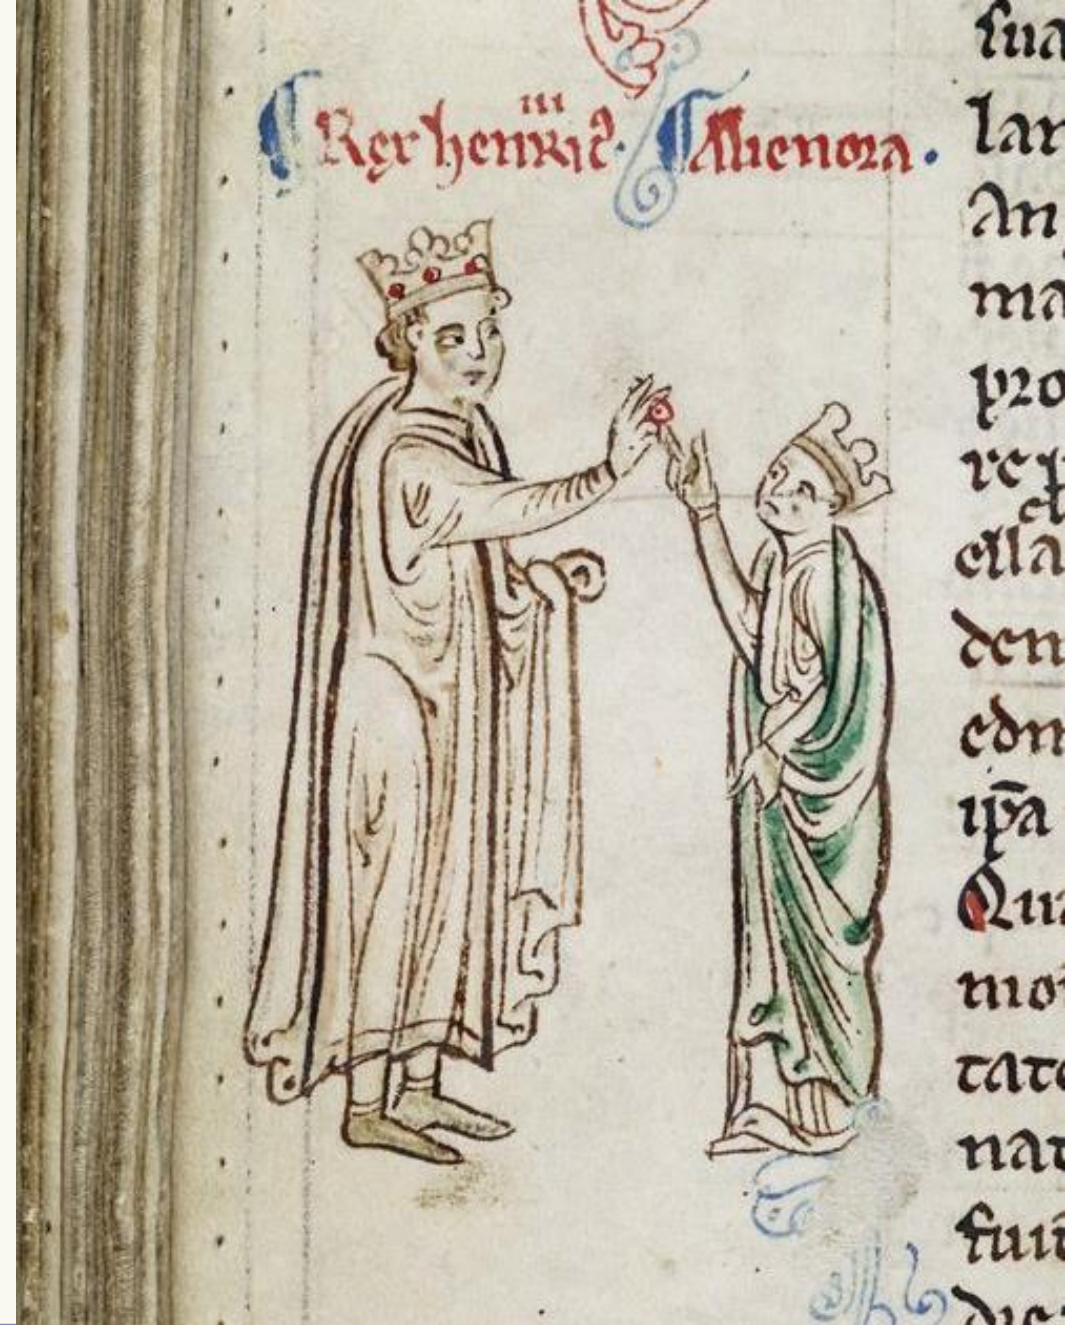 Rex henric᷒ iii. Alienora.
sua
lar
An
ma
pro
re p
ella
den
edu
ip̄a
Qua
mo
tate
nat
fuit
die